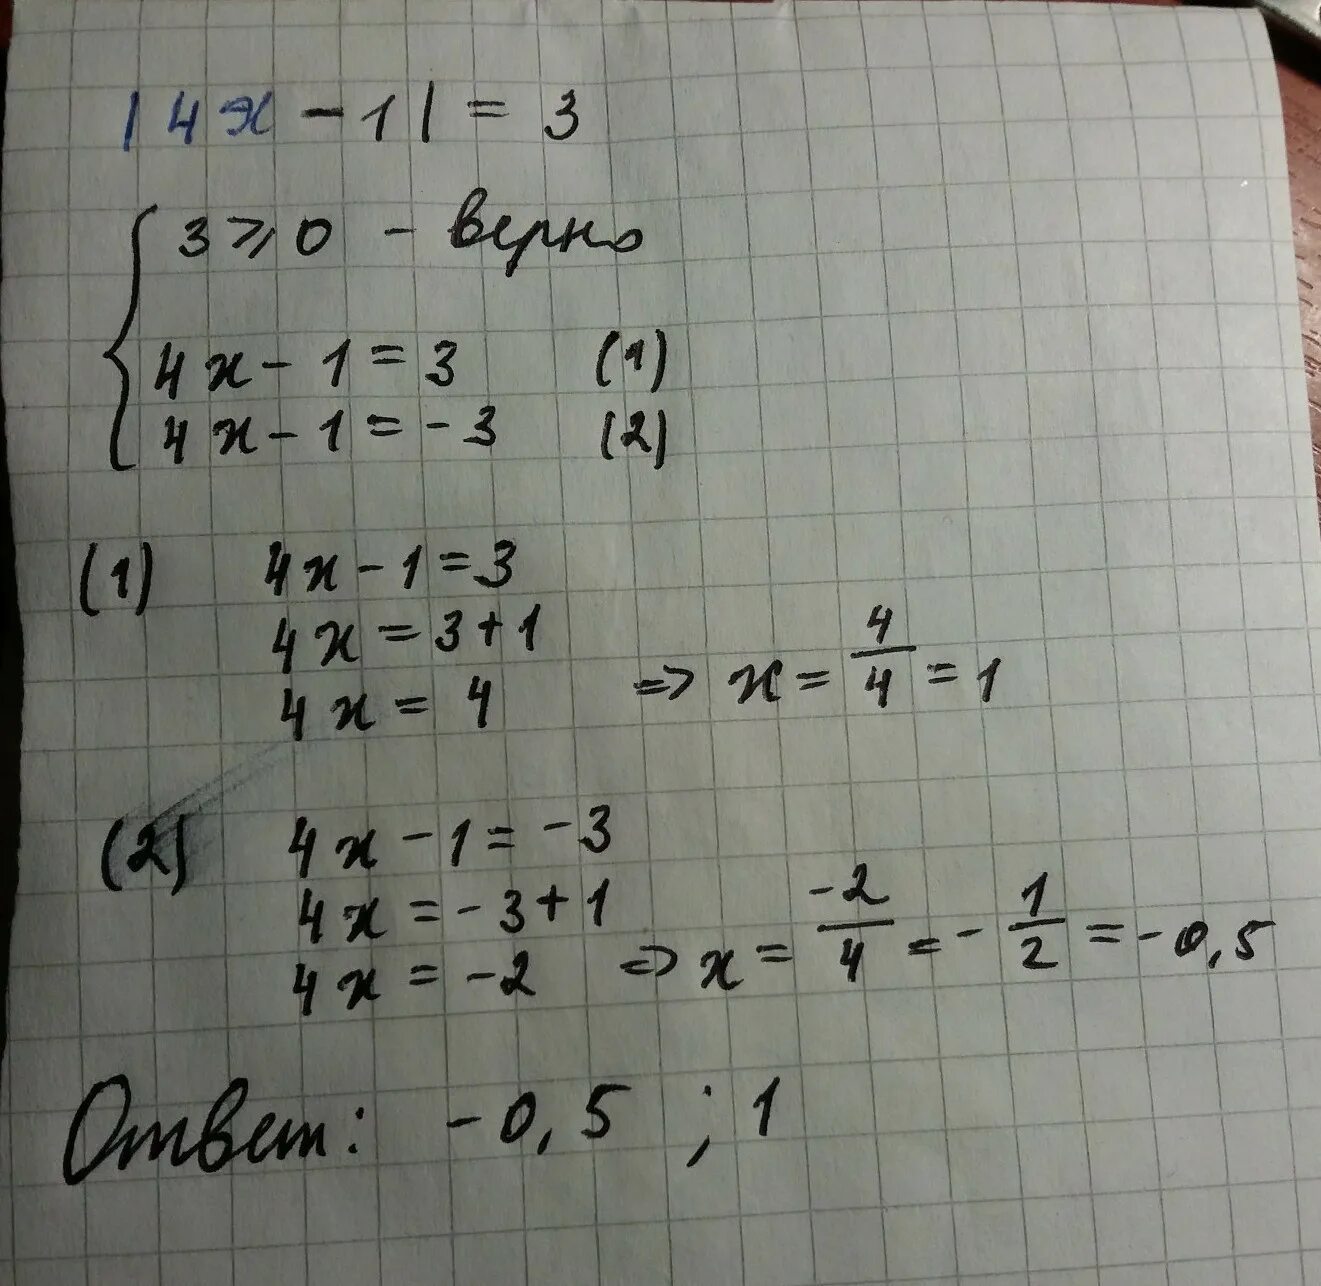 |4x - 1| = 3
3 ⩾ 0 - верно
4x - 1 = 3 (1)
4x - 1 = - 3 (2)
(1) 4x - 1 = 3
4x = 3 + 1
4x = 4 => x = 4/4 = 1
(2) 4x - 1 = - 3
4x = - 3 + 1
4x = - 2 => x = -2/4 = - 1/2 = - 0,5
Ответ: - 0,5 ; 1